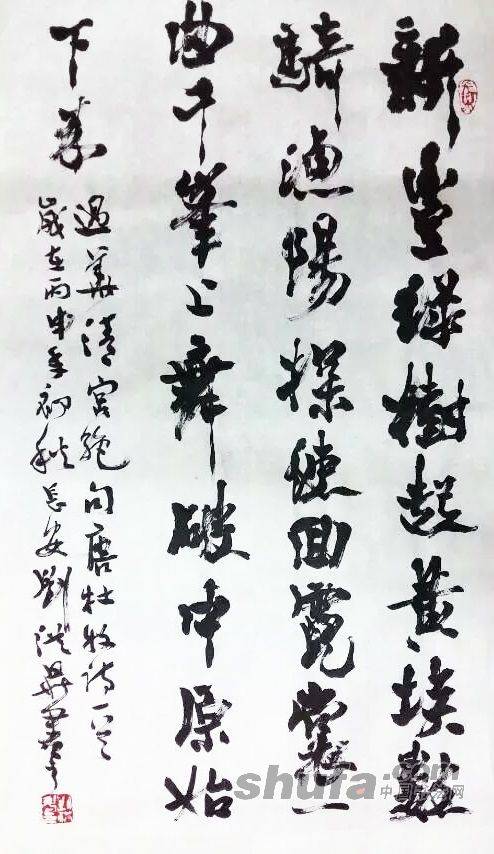 新豐綠樹起黃埃數
騎漁陽探使回霓裳一
曲千峯上舞破中原始
下來
過華清宮絕句唐杜牧詩一首
歲在丙申年初秋長安劉洪書
shufa.com
中国书法网